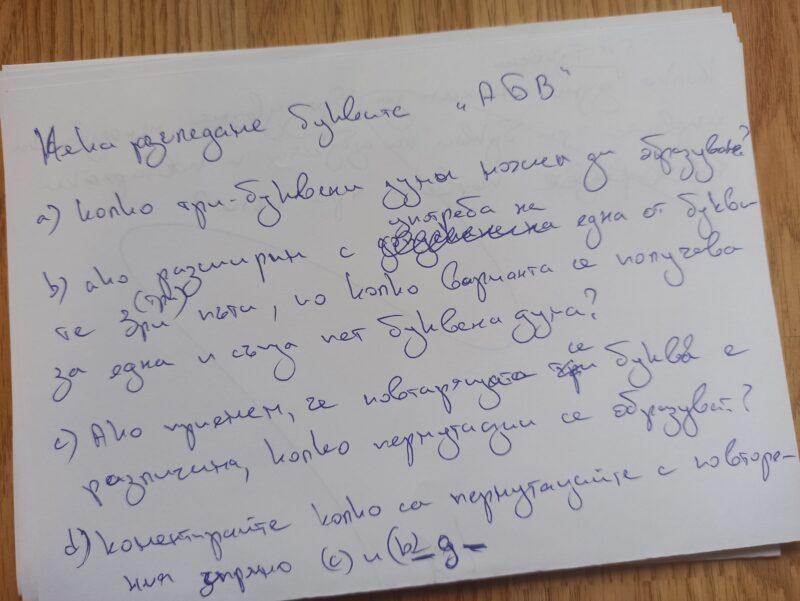 Нека разгледаме буквите „АБВ“
a) колко три-буквени думи можем да образуваме?
употреба на
b) ако разширим с една от букви-
(три)
те 3 пъти, по колко варианта се получава
за една и съща пет буквена дума?
c) Ако приемем, че повтарящата се буква е
различна, колко пермутации се образуват?
d) коментирайте колко са пермутациите с повторе-
ния спрямо (c) и (b)